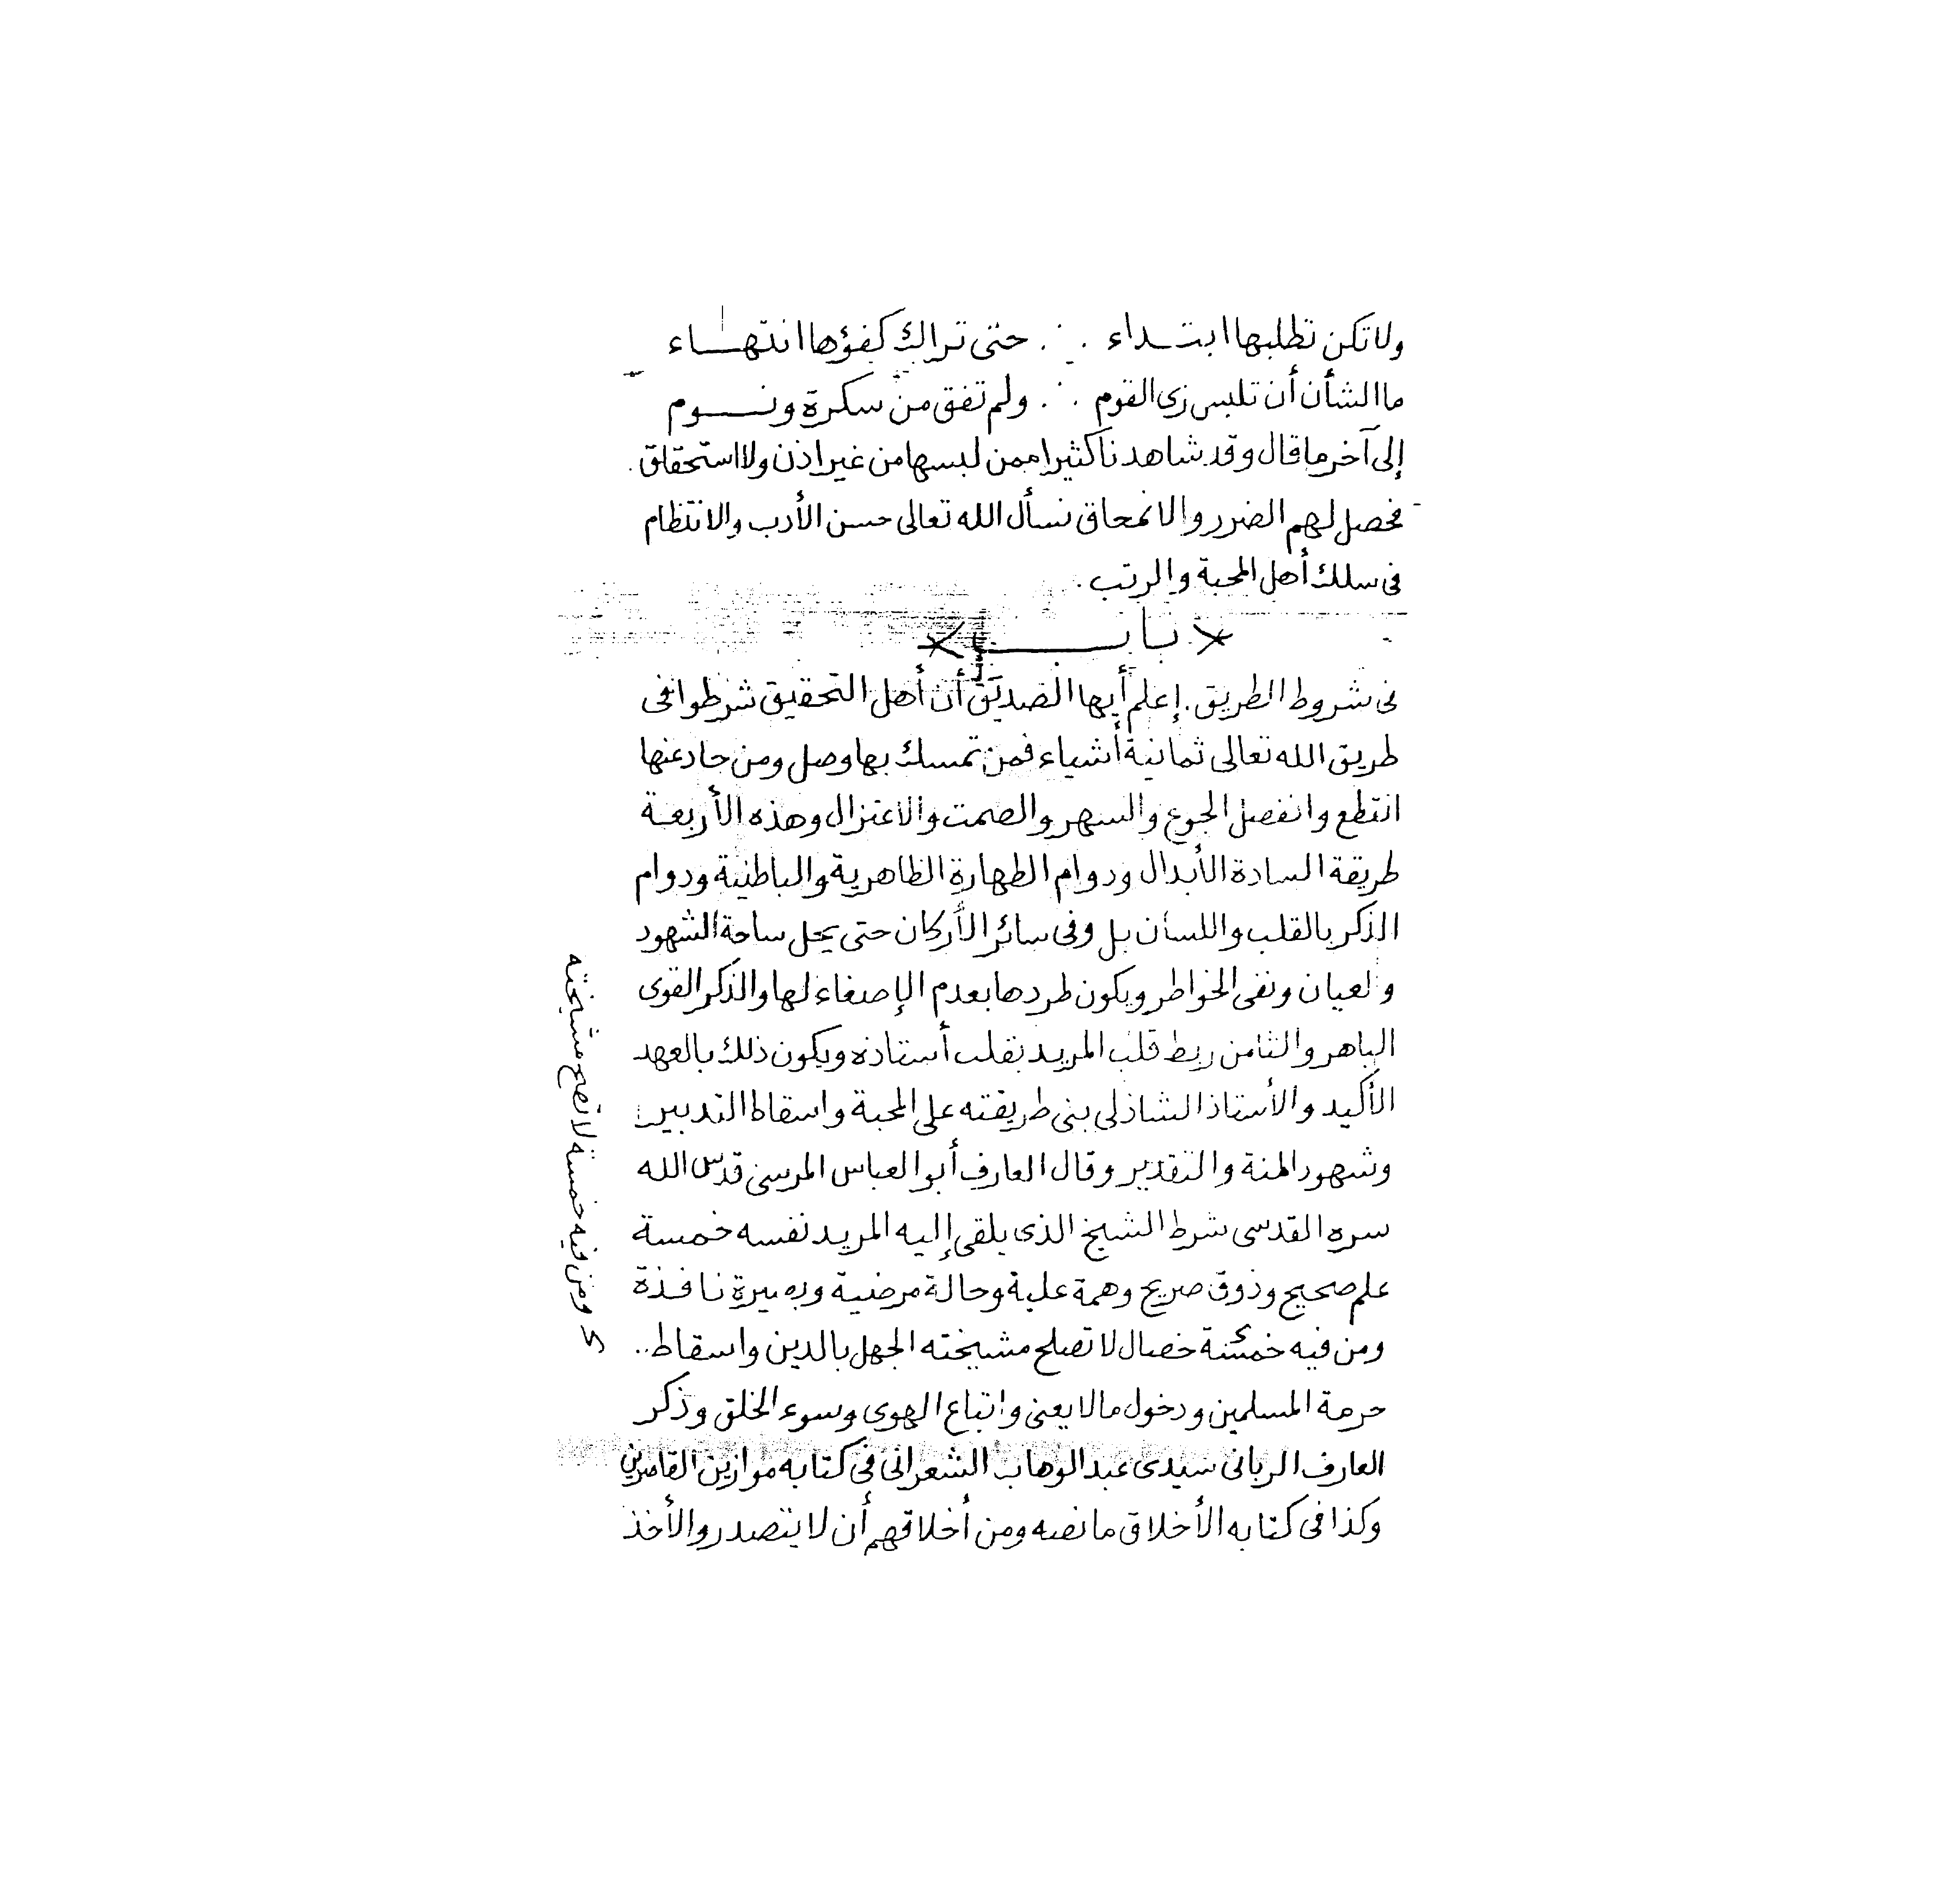 ولا تكن تطلبها ابتـــداء ∴ حتى تراك كفؤها انتهـــاء
ما الشأن أن تلبس زى القوم ∴ ولم تفق من سكرة ونـــوم
إلى آخر ما قال وقد شاهدنا كثيرا ممن لبسها من غير اذن ولا استحقاق .
فحصل لهم الضرر والانمحاق نسأل الله تعالى حسن الأدب والانتظام
فى سلك أهل المحبة والرتب .
* بابـــــ *
فى شروط الطريق . إعلم أيها الصديق أن أهل التحقيق شرطوا فى
طريق الله تعالى ثمانية أشياء فمن تمسك بها وصل ومن حاد عنها
انقطع وانفصل الجوع والسهر والصمت والاعتزال وهذه الأربعـة
طريقة السادة الأبدال ودوام الطهارة الظاهرية والباطنية ودوام
الذكر بالقلب واللسان بل وفى سائر الأركان حتى يحل ساحة الشهود
والعيان ونفى الخواطر ويكون طردها بعدم الإصغاء لها والذكر القوى
الباهر والثامن ربط قلب المريد بقلب أستاذه ويكون ذلك بالعهد
الأكيد والأستاذ الشاذلى بنى طريقته على المحبة واسقاط التدبير
وشهود المنة والتقدير وقال العارف أبو العباس المرسى قدس الله
سره القدسى شرط الشيخ الذى يلقى إليه المريد نفسه خمسة
علم صحيح وذوق صريح وهمة علية وحالة مرضية وبصيرة نافـذة
ومن فيه خمسة خصال لا تصلح مشيخته الجهل بالدين واسقاط ..
حرمة المسلمين ودخول مالا يعنى واتباع الهوى وسوء الخلق وذكر
العارف الربانى سيدى عبد الوهاب الشعرانى فى كتابه موازين القاصرين
وكذا فى كتابه الأخلاق ما نصه ومن أخلاقهم أن لا يتصدر والأخذ
ومن فيه خمسة لا تصح مشيخته